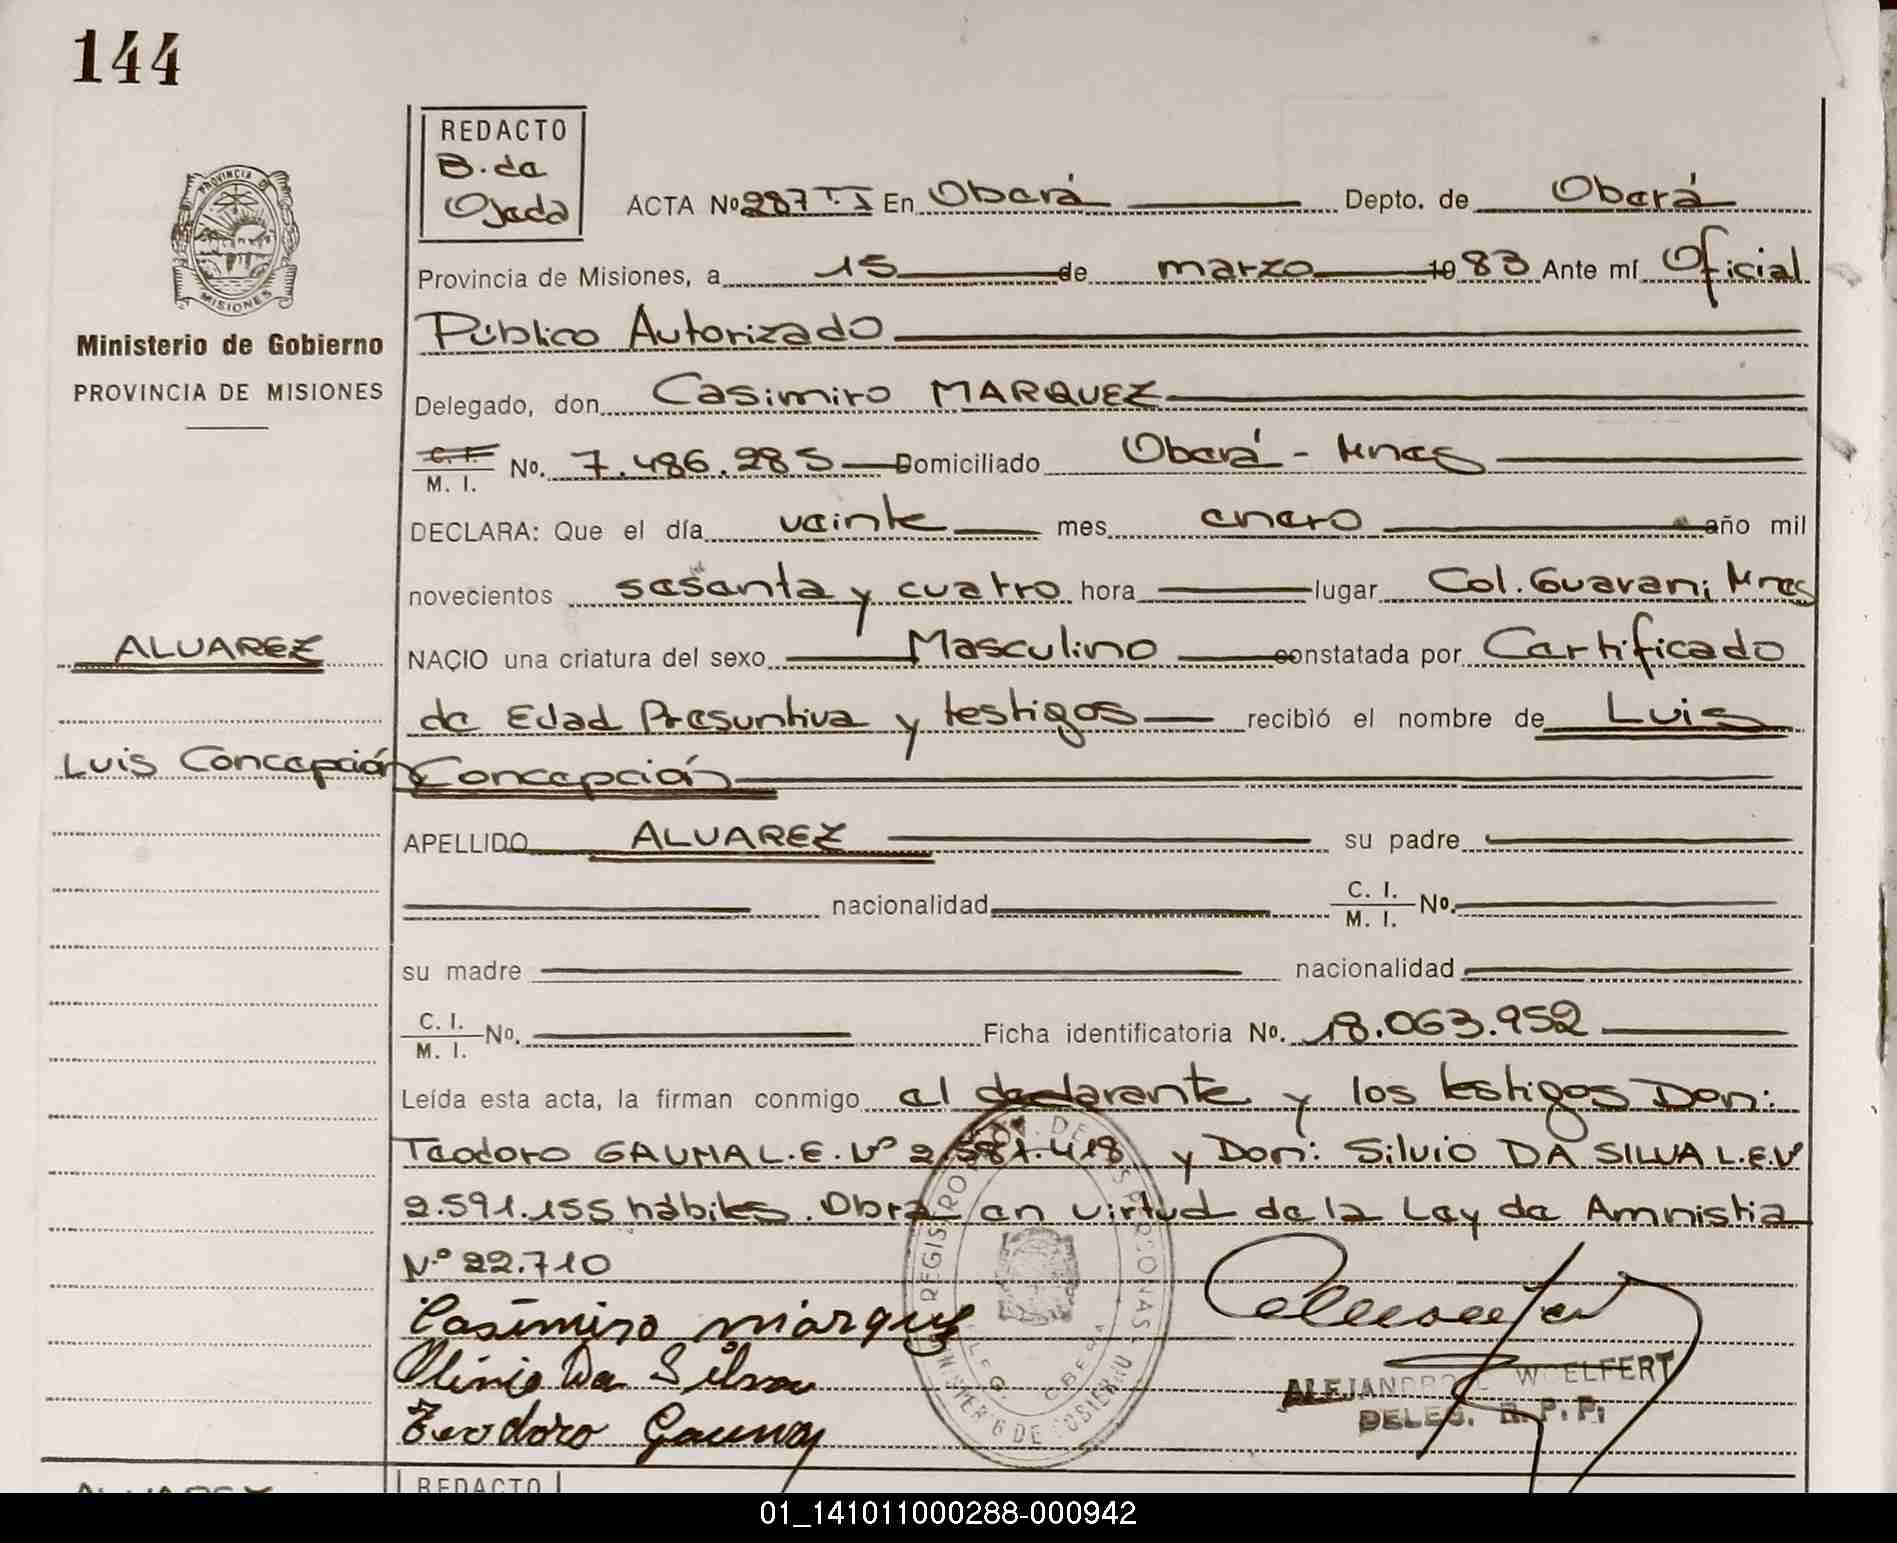 144
REDACTO
B. de
Ojeda
ACTA Nº 287 T.I En Oberá Depto. de Oberá
PROVINCIA DE
MISIONES
Provincia de Misiones, a 15 de marzo 1983 Ante mí Oficial
Público Autorizado
Ministerio de Gobierno
PROVINCIA DE MISIONES
Delegado, don Casimiro MARQUEZ
C. I.
M. I. No. 7.486.285 Domiciliado Oberá - Mnes
DECLARA: Que el día veinte mes enero año mil
novecientos sesenta y cuatro hora lugar Col. Guarani Mnes
ALVAREZ
NACIO una criatura del sexo Masculino constatada por Certificado
de Edad Presuntiva y testigos recibió el nombre de Luis
Luis Concepción
Concepción
APELLIDO ALVAREZ su padre
nacionalidad C. I.
M. I. No.
su madre nacionalidad
C. I.
M. I. No. Ficha identificatoria No. 18.063.952
Leída esta acta, la firman conmigo el declarante y los testigos Don:
Teodoro GAUNA L.E. Nº 2.581.418 y Don: Silvio DA SILVA L.E.Nº
2.591.155 hábiles. Obra en virtud de la Ley de Amnistia
Nº 22.710
Casimiro Márquez
Da Silva
Teodoro Gauna
ALEJANDRO WOELFERT
DELEG. R. P. P.
ALVAREZ
REDACTO
01_141011000288-000942